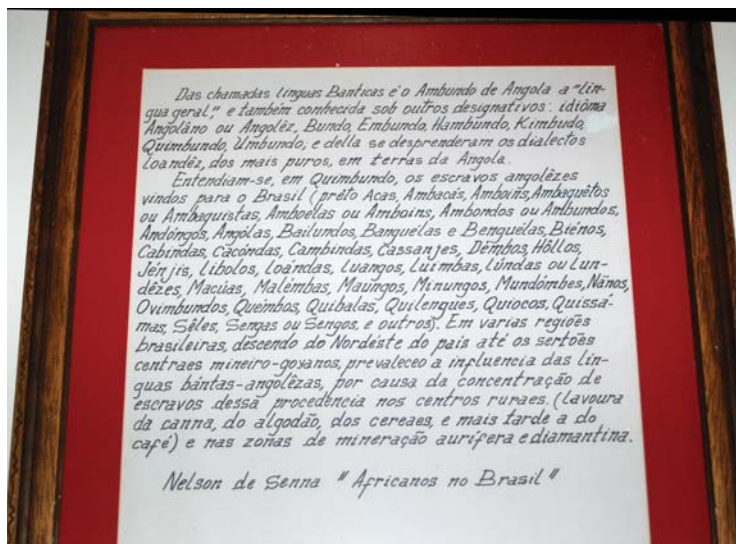 Das chamadas línguas Bânticas é o Ambundo de Angola a "lín-
gua geral", e também conhecida sob outros designativos: idiôma
Angolâno ou Angolêz, Bundo, Embundo, Hambundo, Kimbudo,
Quimbundo, Umbundo, e della se desprenderam os dialectos
loandêz, dos mais puros, em terras da Angola.
Entendiam-se, em Quimbundo, os escravos angolêzes
vindos para o Brasil (prêto Acas, Ambacás, Amboins, Ambaquêtos
ou Ambaquistas, Amboelas ou Amboins, Ambondos ou Ambundos,
Andóngos, Angólas, Bailundos, Banguélas e Benguélas, Biénos,
Cabindas, Cacóndas, Cambindas, Cassanjes, Dêmbos, Hôllos,
Jénjis, Libolos, loândas, luangos, luimbas, lúndas ou lun-
dêzes, Macúas, Malêmbas, Maúngos, Minungos, Mundombes, Nânos,
Ovimbundos, Quembos, Quibalas, Quilengues, Quiocos, Quissá-
mas, Sêles, Sengas ou Sengos, e outros). Em varias regiões
brasileiras, descendo do Nordéste do país até os sertões
centraes mineiro-goyanos, prevaleceo a influencia das lín-
guas bântas-angolêzas, por causa da concentração de
escravos dessa procedência nos centros ruraes. (lavoura
da canna, do algodão, dos cereaes, e mais tarde a do
café) e nas zonas de mineração aurífera e diamantina.
Nelson de Senna "Africanos no Brasil"